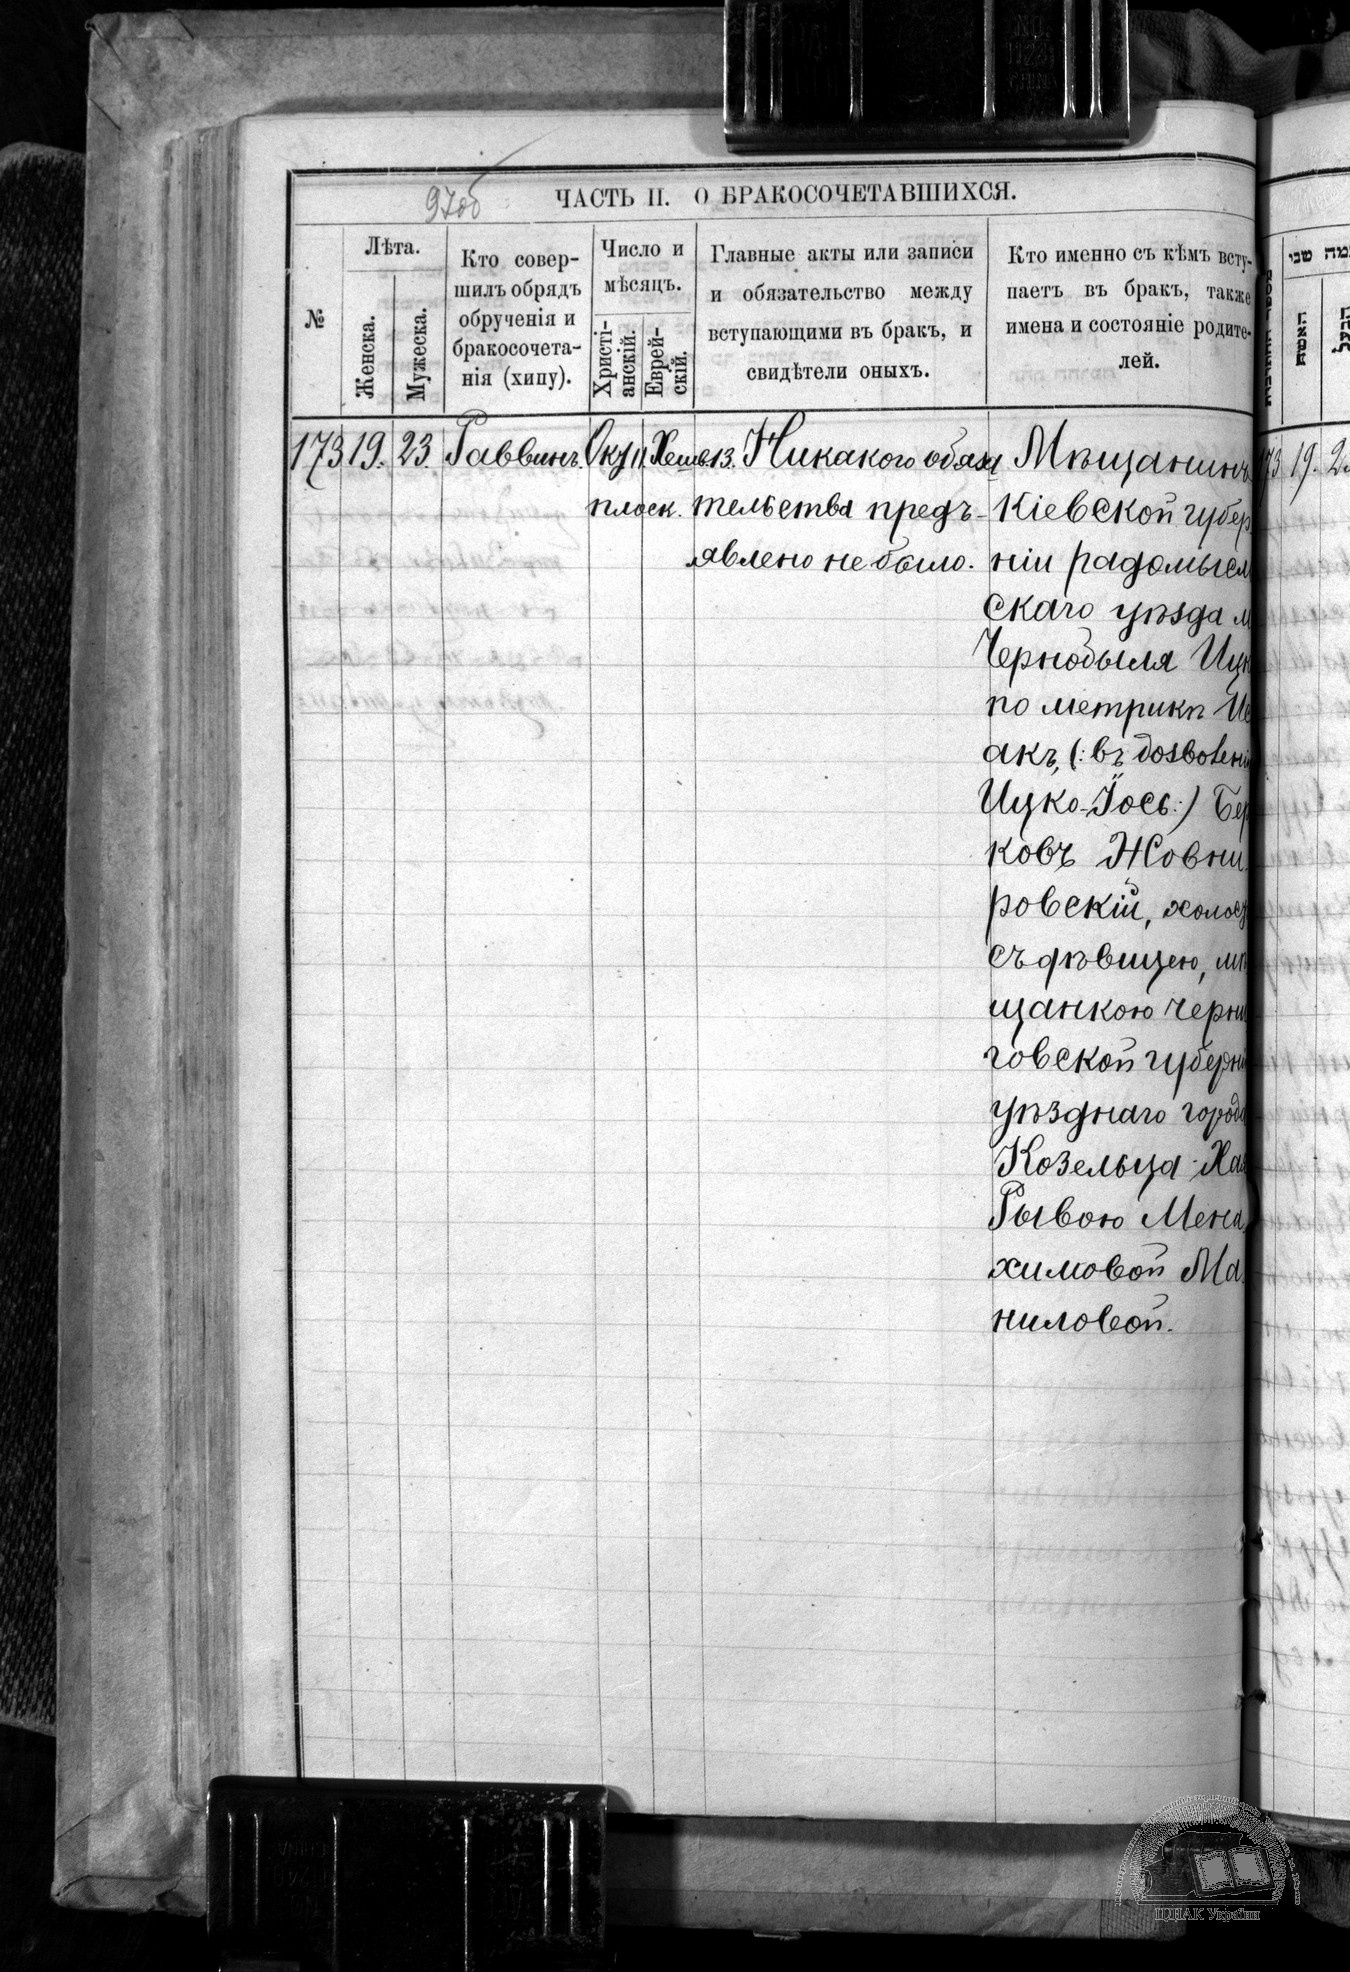 97об
ЧАСТЬ II. О БРАКОСОЧЕТАВШИХСЯ.
№
Лѣта.
Женска.
Мужеска.
Кто совер-
шилъ обрядъ
обрученія и
бракосочета-
нія (хипу).
Число и
мѣсяцъ.
Христі-
анскій.
Еврей-
скій.
Главные акты или записи
и обязательство между
вступающими въ бракъ, и
свидѣтели оныхъ.
Кто именно съ кѣмъ всту-
паетъ въ бракъ, также
имена и состояніе родите-
лей.
173 19. 23. Раввинъ. Окт 11 Хешв 13.
плоск.
Никакого обяза
тельства предъ-
явлено не было.
Мѣщанинъ
Кіевской губер
ніи радомысл
скаго уѣзда м
Чернобыля Ицк
по метрикѣ Ис
акъ, (: въ дозволеніи
Ицко-Іось :) Бер
ковъ Жовни
ровскій, холост
съ дѣвицею, мѣ
щанкою черни
говской губерніи
уѣзднаго города
Козельца Хая
Рывою Мена
химовой Ма
ниловой.
האשה
הבעל
173 19. 2
ЦДІАК України